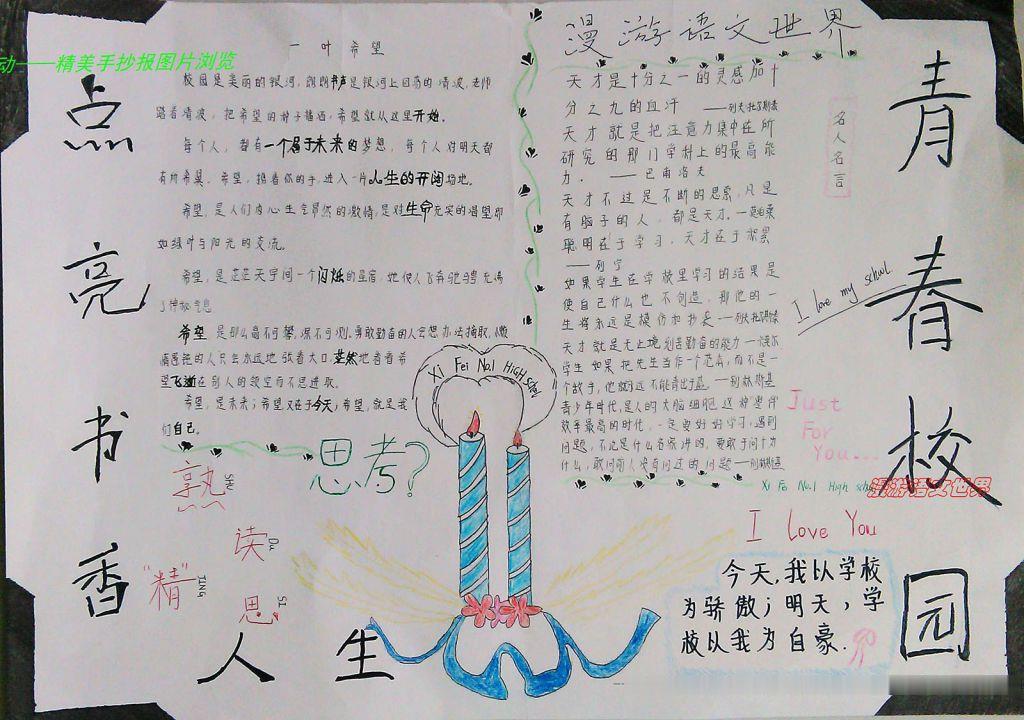 动——精美手抄报图片浏览
点亮书香
人生
青春校园
一叶希望
校园是美丽的银河,朗朗书声是银河上回荡的清波,老师
踏着清波,把希望的种子播洒,希望就从这里开始。
每个人,都有一个属于未来的梦想,每个人对明天都
有所希冀。希望,携着你的手,进入一片人生的开阔场地。
希望,是人们内心生气昂然的激情,是对生命充实的渴望即
如绿叶与阳光的交流。
希望,是茫茫天宇间一个闪烁的星宿,她使人飞奔驰骋充满
了神秘气息
希望是那么高不可攀,深不可测,勇敢勤奋的人会想办法摘取,
的人只会永远地张着大口,茫然地看着希
望飞逝在别人的领空而不思进取。
希望,是未来;希望又在于今天;希望,就是我
们自己。
漫游语文世界
天才是十分之一的灵感加十
分之九的血汗 ——列夫·托尔斯泰
天才就是把注意力集中在所
研究的那门学科上的最高能
力. ——巴甫洛夫
天才不过是不断的思索,凡是
有脑子的人,都是天才.—莫泊桑
聪明在于学习,天才在于积累
——列宁
如果学生在学校里学习的结果是
使自己什么也不创造,那他的一
生将永远是模仿和抄袭——列夫·托尔斯泰
天才就是无止境刻苦勤奋的能力
学生如果把先生当作一个范本,而不是一
个敌手,他就永远不能青出于蓝.——别林斯基
青少年时代,是人的大脑细胞
效率最高的时代,一定要好好学习,遇到
问题,不论是什么名家讲的,要敢于问十为
什么,敢问前人没有问过的问题——别林斯基
名人名言
I love my school.
Xi Fei No.1 High School
思考?
熟
读 Du
"精" JING
思 SI
Just
For
You...
Xi Fei No.1 High school
漫游语文世界
I love You
今天,我以学校
为骄傲;明天,学
校以我为自豪.